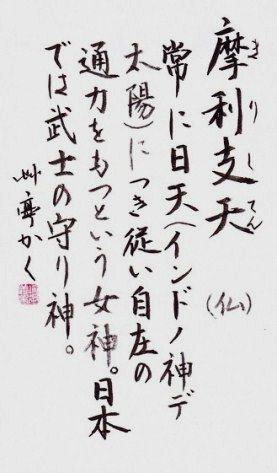 摩利支天
まりしてん
(仏)
常に日天(インドノ神デ
太陽)につき従い自在の
通力をもつという女神。日本
では武士の守り神。
艸亭かく